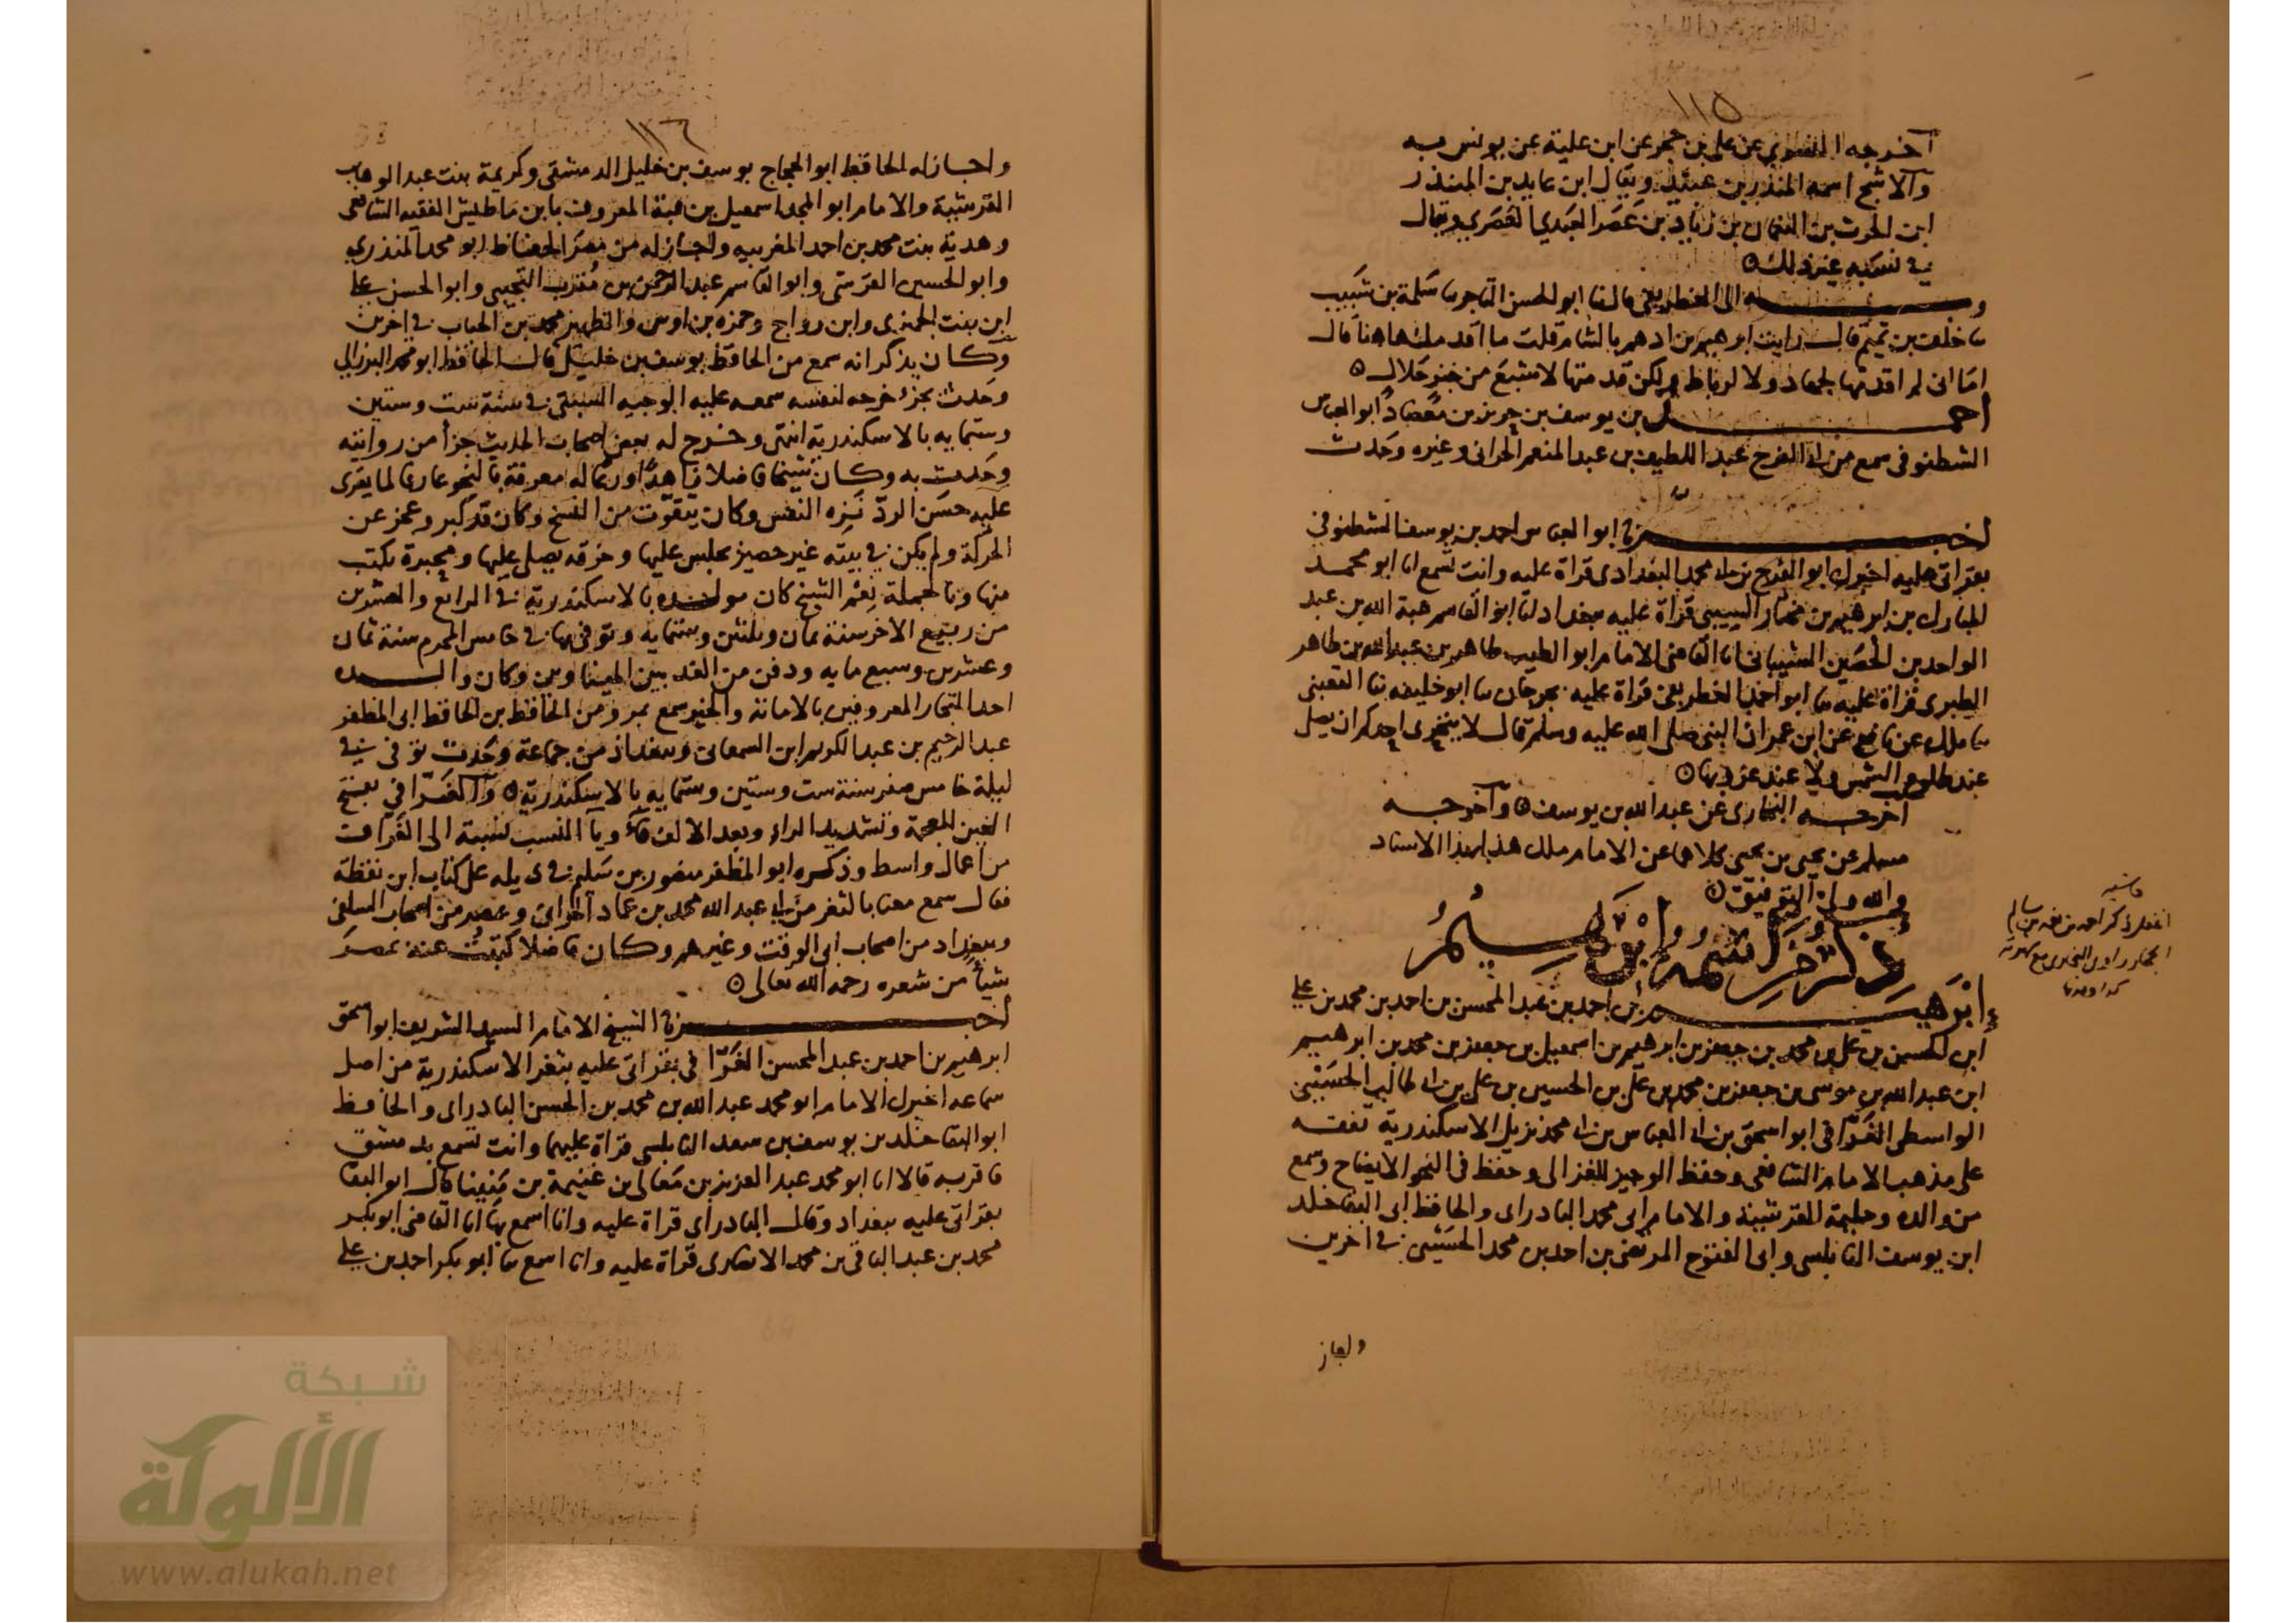 ١١٥
اخرجه النسوي عن علي بن حجر عن ابن علية عن يونس به
والاشج اسمه المنذر بن عبيد ويقال ابن عايد بن المنذر
ابن الحرث بن النعمان بن زياد بن عصر العبدي العصري ويقال
في نسبه غير ذلك ٥
وبه الى الغطريفي قال ثنا ابو الحسن التاجر نا سلمة بن شبيب
نا خلف بن تميم قال رايت ابرهيم بن ادهم بالشام قلت ما اقدمك هاهنا قال
اما اني لم اقدمها لجهاد ولا لرباط ولكن قدمتها لاشبع من خبز حلال ٥
احمد بن يوسف بن جرير بن معضاد ابو العباس
الشطنوفي سمع من ابي الفرج عبد اللطيف بن عبد المنعم الحراني وغيره وحدث
اخبرنا ابو العباس احمد بن يوسف الشطنوفي
بقراتي عليه اخبرك ابو الفرج بن ابي محمد البغدادي قراة عليه وانت تسمع انا ابو محمد
المبارك بن ابرهيم بن مختار السيبي قراة عليه ببغداد انا ابو القاسم هبة الله بن عبد
الواحد بن الحصين الشيباني انا القاضي الامام ابو الطيب طاهر بن عبد الله بن طاهر
الطبري قراة عليه نا ابو احمد الغطريفي قراة عليه بجرجان نا ابو خليفه نا القعنبي
نا ملك عن نافع عن ابن عمر ان النبي صلى الله عليه وسلم قال لا يتحرى احدكم ان يصلي
عند طلوع الشمس ولا عند غروبها ٥
اخرجه البخاري عن عبد الله بن يوسف ٥ واخرجه
مسلم عن يحيى بن يحيى كلاهما عن الامام ملك هذا بهذا الاسناد
والله ولي التوفيق ٥
ابرهيم بن احمد بن عبد المحسن بن احمد بن محمد بن علي
ابن الحسن بن علي بن محمد بن جعفر بن ابرهيم بن اسمعيل بن جعفر بن محمد بن ابرهيم
ابن عبد الله بن موسى بن جعفر بن محمد بن علي بن الحسين بن علي بن ابي طالب الحسيني
الواسطي الغرافي ابو اسحق بن ابي العباس بن ابي محمد نزيل الاسكندرية تفقه
على مذهب الامام الشافعي وحفظ الوجيز للغزالي وحفظ في النحو الايضاح وسمع
من والده وحليمة القرشية والامام ابي محمد البادراي والحافظ ابي البقا خلد
ابن يوسف النابلسي وابي الفتوح المرتضى بن احمد بن محمد الحسيني في اخرين
واجاز
١١٦
واجاز له الحافظ ابو الحجاج يوسف بن خليل الدمشقي وكريمة بنت عبد الوهاب
القرشية والامام ابو المجد اسمعيل بن هبة المعروف بابن باطيش الفقيه الشافعي
وهدية بنت محمد بن احمد المغربيه واجاز له من مصر الحفاظ ابو محمد المنذري
وابو الحسين القرشي وابو القاسم عبد الرحمن بن مقرب التجيبي وابو الحسن علي
ابن بنت الجميزي وابن رواج وحمزه بن اوس والظهير محمد بن الحباب في اخرين
وكان يذكر انه سمع من الحافظ يوسف بن خليل قال الحافظ ابو محمد البرزالي
وحدث بجزء خرجه لنفسه سمعه عليه الوجيه السبتي في سنة ست وستين
وستمايه بالاسكندرية انتهى وخرج له بعض اصحاب الحديث جزا من روايته
وحدث به وكان شيخا فاضلا زاهدا ورعا له معرفة بالنحو عارفا لما يقرى
عليه حسن الرد نزه النفس وكان يتقوت من النسخ وكان قد كبر وعجز عن
الحركة ولم يكن في بيته غير حصير يجلس عليها وخرقه يصلي عليها ومحبرة يكتب
منها وبالجملة نعم الشيخ كان مولده بالاسكندرية في الرابع والعشرين
من ربيع الاخر سنة ثمان وثلثين وستمايه وتوفي بها في خامس المحرم سنة ثمان
وعشرين وسبع مايه ودفن من الغد بين الميناوين وكان والده
احد التجار المعروفين بالامانة والخير سمع بمرو من الحافظ بن الحافظ ابي المظفر
عبد الرحيم بن عبد الكريم ابن السمعاني وببغداد من جماعة وحدث توفي في
ليلة خامس صفر سنة ست وستين وستمايه بالاسكندرية ٥ والغرافي بفتح
الغين المعجمة وتشديد الراء وبعد الالف فاء ويا النسب نسبة الى الغراف
من اعمال واسط وذكره ابو المظفر منصور بن سليم في ذيله على كتاب ابن نقطة
فقال سمع معنا بالثغر من ابي عبد الله محمد بن عماد الحراني وغيره من اصحاب السلفي
وببغداد من اصحاب ابي الوقت وغيرهم وكان فاضلا كتبت عنه بمصر
شيأ من شعره رحمه الله تعالى ٥
اخبرنا الشيخ الامام السيد الشريف ابو اسحق
ابرهيم بن احمد بن عبد المحسن الغرافي بقراتي عليه بثغر الاسكندرية من اصل
سماعه اخبرك الامام ابو محمد عبد الله بن محمد بن الحسن البادراي والحافظ
ابو البقا خلد بن يوسف بن سعد النابلسي قراة عليهما وانت تسمع بدمشق
فاقر به قالا انا ابو محمد عبد العزيز بن معالي بن غنيمة بن منينا قال ابو البقا
بقراتي عليه ببغداد وقال البادراي قراة عليه وانا اسمع بها انا القاضي ابو بكر
محمد بن عبد الباقي بن محمد الانصاري قراة عليه وانا اسمع نا ابو بكر احمد بن علي
شبكة
الألوكة
www.alukah.net